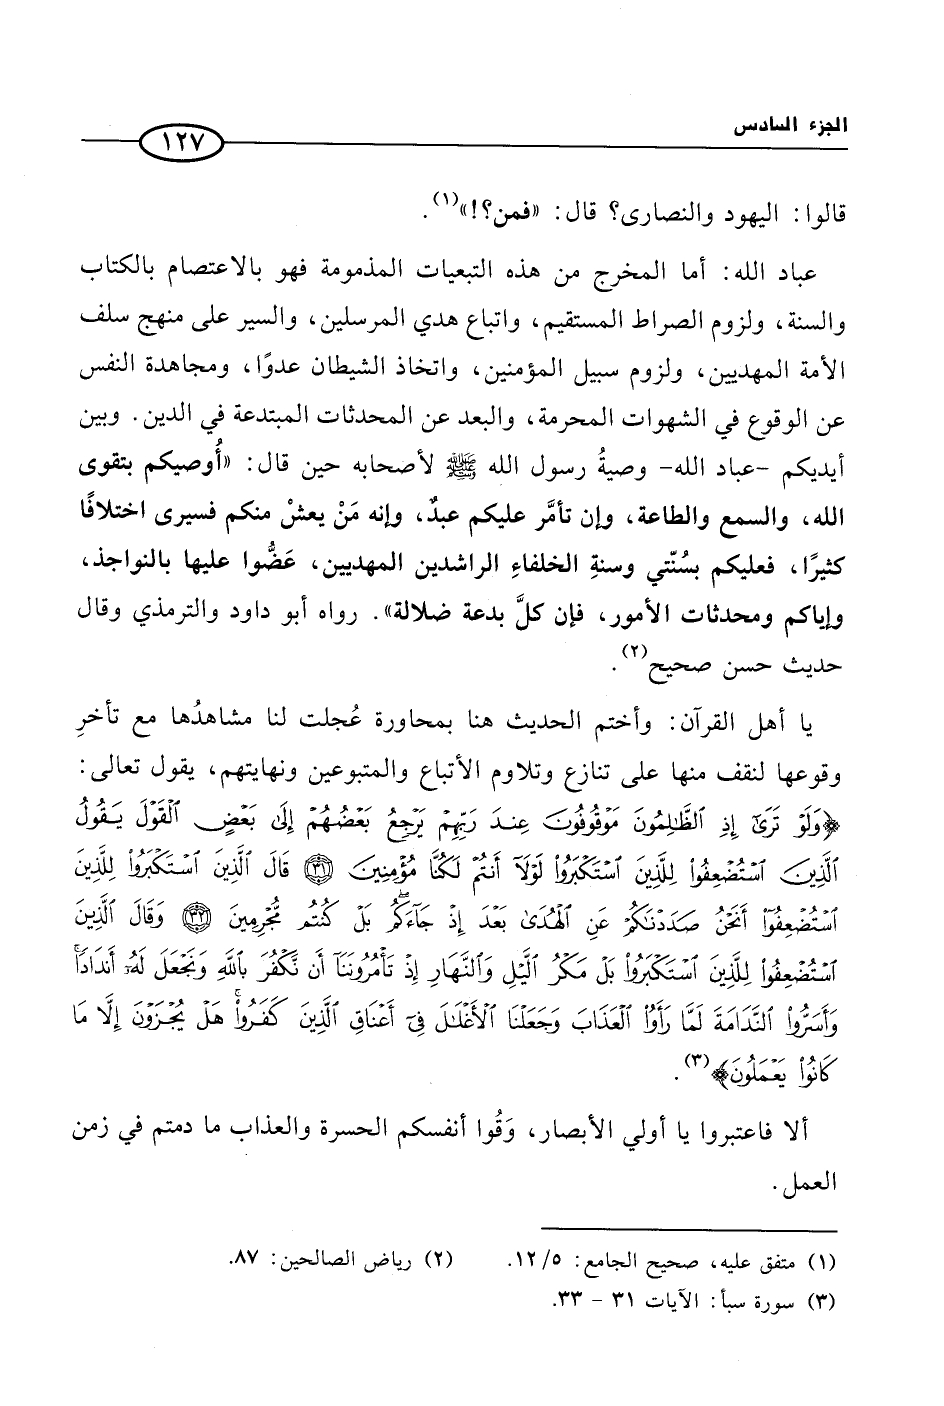 الجزء السادس
١٢٧
قالوا: اليهود والنصارى؟ قال: «فمن؟!»(١).
عباد الله: أما المخرج من هذه التبعيات المذمومة فهو بالاعتصام بالكتاب
والسنة، ولزوم الصراط المستقيم، واتباع هدي المرسلين، والسير على منهج سلف
الأمة المهديين، ولزوم سبيل المؤمنين، واتخاذ الشيطان عدوًا، ومجاهدة النفس
عن الوقوع في الشهوات المحرمة، والبعد عن المحدثات المبتدعة في الدين. وبين
أيديكم -عباد الله- وصيةُ رسول الله ﷺ لأصحابه حين قال: «أُوصيكم بتقوى
الله، والسمع والطاعة، وإن تأمَّر عليكم عبدٌ، وإنه مَنْ يعشْ منكم فسيرى اختلافًا
كثيرًا، فعليكم بسُنّتي وسنةِ الخلفاءِ الراشدين المهديين، عَضُّوا عليها بالنواجذ،
وإياكم ومحدثات الأمور، فإن كلَّ بدعة ضلالة». رواه أبو داود والترمذي وقال
حديث حسن صحيح(٢).
يا أهل القرآن: وأختم الحديث هنا بمحاورة عُجلت لنا مشاهدُها مع تأخرِ
وقوعها لنقف منها على تنازع وتلاوم الأتباع والمتبوعين ونهايتهم، يقول تعالى:
﴿وَلَوْ تَرَىٰٓ إِذِ ٱلظَّٰلِمُونَ مَوْقُوفُونَ عِندَ رَبِّهِمْ يَرْجِعُ بَعْضُهُمْ إِلَىٰ بَعْضٍ ٱلْقَوْلَ يَقُولُ
ٱلَّذِينَ ٱسْتُضْعِفُوا۟ لِلَّذِينَ ٱسْتَكْبَرُوا۟ لَوْلَآ أَنتُمْ لَكُنَّا مُؤْمِنِينَ ٣١ قَالَ ٱلَّذِينَ ٱسْتَكْبَرُوا۟ لِلَّذِينَ
ٱسْتُضْعِفُوٓا۟ أَنَحْنُ صَدَدْنَٰكُمْ عَنِ ٱلْهُدَىٰ بَعْدَ إِذْ جَآءَكُم ۖ بَلْ كُنتُم مُّجْرِمِينَ ٣٢ وَقَالَ ٱلَّذِينَ
ٱسْتُضْعِفُوا۟ لِلَّذِينَ ٱسْتَكْبَرُوا۟ بَلْ مَكْرُ ٱلَّيْلِ وَٱلنَّهَارِ إِذْ تَأْمُرُونَنَآ أَن نَّكْفُرَ بِٱللَّهِ وَنَجْعَلَ لَهُۥٓ أَندَادًا ۚ
وَأَسَرُّوا۟ ٱلنَّدَامَةَ لَمَّا رَأَوُا۟ ٱلْعَذَابَ وَجَعَلْنَا ٱلْأَغْلَٰلَ فِىٓ أَعْنَاقِ ٱلَّذِينَ كَفَرُوا۟ ۚ هَلْ يُجْزَوْنَ إِلَّا مَا
كَانُوا۟ يَعْمَلُونَ﴾(٣).
ألا فاعتبروا يا أولي الأبصار، وَقُوا أنفسكم الحسرة والعذاب ما دمتم في زمن
العمل.
(١) متفق عليه، صحيح الجامع: ١٢/٥. (٢) رياض الصالحين: ٨٧.
(٣) سورة سبأ: الآيات ٣١ - ٣٣.